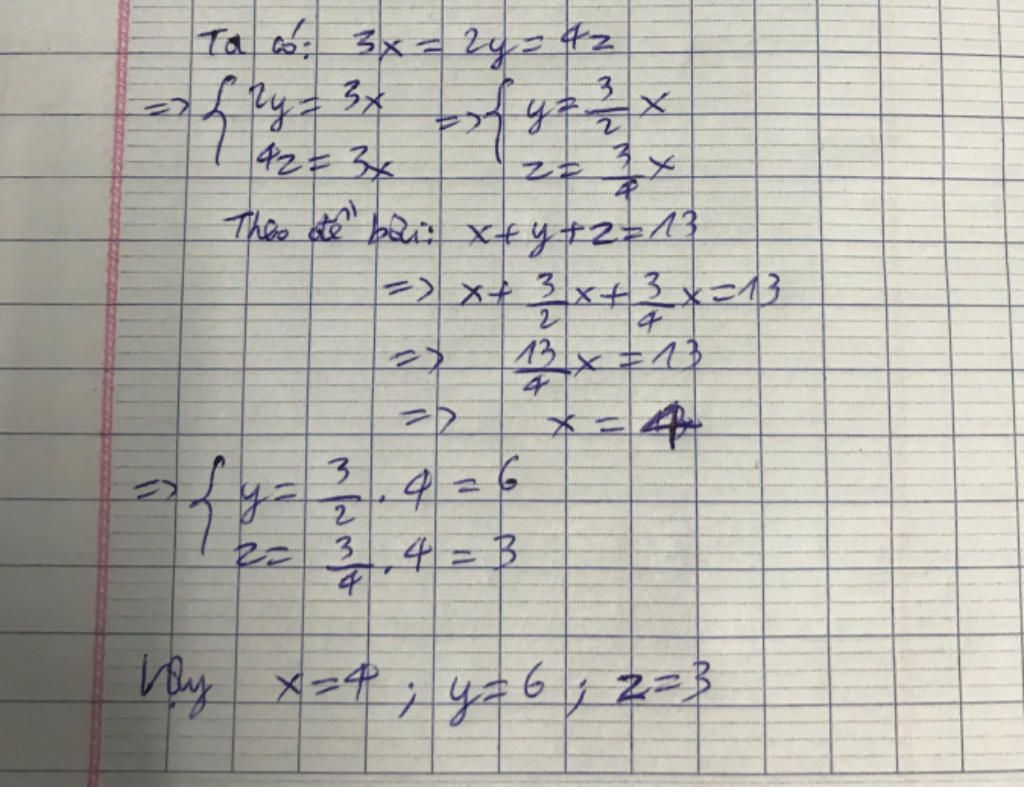 Ta có: 3x = 2y = 4z
=> { 2y = 3x => { y = 3/2 x
4z = 3x z = 3/4 x
Theo đề bài: x + y + z = 13
=> x + 3/2 x + 3/4 x = 13
=> 13/4 x = 13
=> x = 4
=> { y = 3/2 . 4 = 6
z = 3/4 . 4 = 3
Vậy x = 4 ; y = 6 ; z = 3